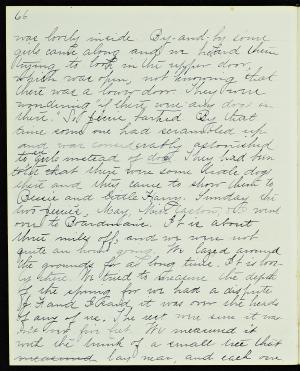 66
was lovely inside. By-and-by some
girls came along and we heard them
trying to look in the upper door,
which was open, not knowing that
there was a lower door. They were
wondering if there were any dogs in
there. So barked. By that
time some one had scrambled up
and was considerably astonished
to see girls instead of dogs. They had been
told that there were some dogs
there and they came to show them to
Bessie and Little Harry. Sunday the
two Jennies, May, and we went
over to Boardman's. It is about
three miles off, and we were not
quite an hour going. We stayed around
the grounds for a long time. It is love-
ly there. We tried to measure the depth
of the spring for we had a dispute
F. and I said it was over the heads
of any of us. The rest were sure it was
not four feet. We measured it
with the trunk of a small tree that
lay near, and each one